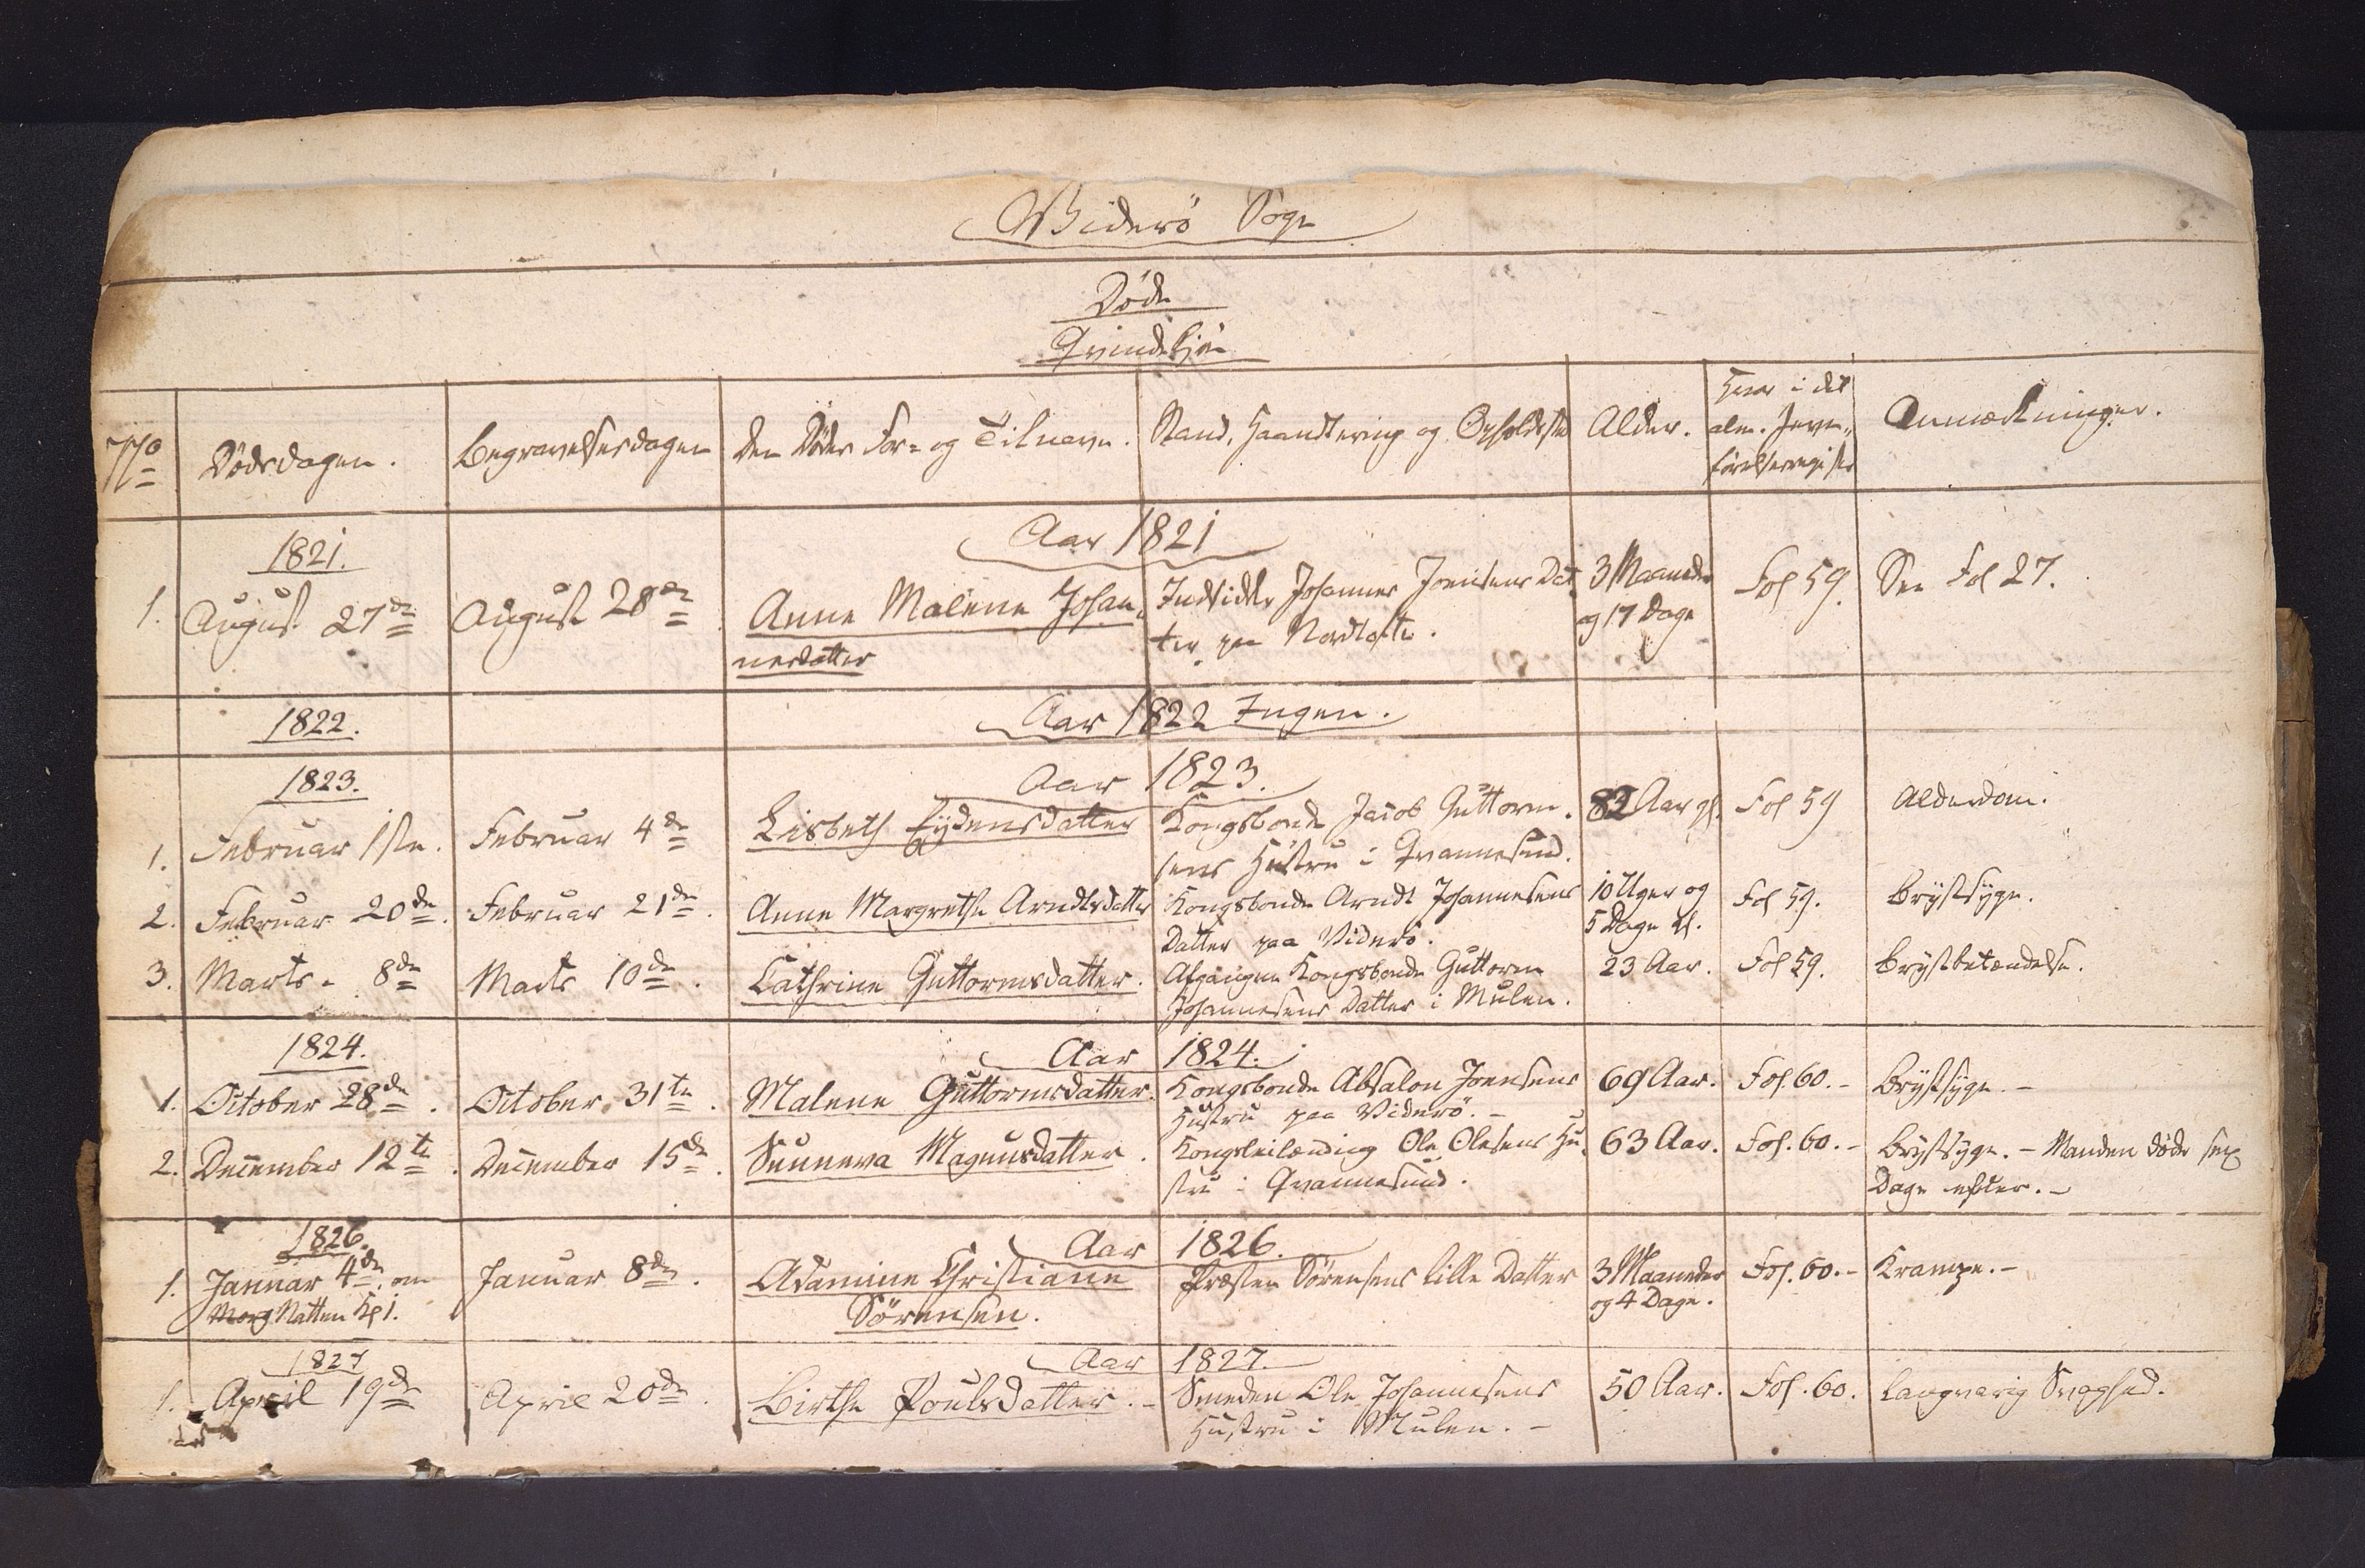 Widerö Sogn
Døde
Qvindekjön
No
Dödsdagen.
Begravelsesdagen
Den Dødes For- og Tilnavn.
Stand, Haandtering og Opholdsted
Alder.
Hvor i det
alm. Jevn-
förelsesregister
Anmærkninger.
1821.
Aar 1821
1. August 27de August 28de Anne Malene Johan- Indsidder Johannes Joensens Dat- 3 Maaneder Fol 59. See Fol 27.
nesdatter ter paa Nordtofte. og 17 Dage
1822. Aar 1822 Ingen.
1823. Aar 1823.
1. Februar 1ste. Februar 4de Lisbeth Eydensdatter Kongsbonde Jacob Guttorm- 82 Aar gl. Fol 59 Alderdom.
sens Hustru i Qvannesund.
2. Februar 20de. Februar 21de. Anne Margrethe Arndtsdatter Kongsbonde Arndt Johannesens 10 Uger og Fol 59. Brystsyge.
Datter paa Viderö. 5 Dage gl.
3. Marts - 8de Marts 10de. Cathrine Guttormsdatter. Afgangne Kongsbonde Guttorm 23 Aar. Fol 59. Brystbetændelse.
Johannesens Datter i Mulen.
1824. Aar 1824.
1. October 28de. October 31te. Malene Guttormsdatter. Kongsbonde Absalon Joensens 69 Aar. Fol. 60.- Brystsyge.-
Hustru paa Viderö.-
2. December 12te. December 15de. Sunneva Magnusdatter. Kongsleilænding Ole Olesens Hu- 63 Aar. Fol. 60.- Brystsyge.- Manden døde sex
stru i Qvannesund. Dage efter.-
1826. Aar 1826.
1. Januar 4de. om Januar 8de. Adamine Christiane Præsten Sörensens lille Datter 3 Maaneder Fol. 60.- Krampe.-
Morg Natten Kl 1. Sörensen. og 4 Dage.
1827 Aar 1827.
1. April 19de April 20de. Birthe Poulsdatter.- Smeden Ole Johannesens 50 Aar. Fol. 60. Langvarig Svaghed.
Hustru i Mulen.-